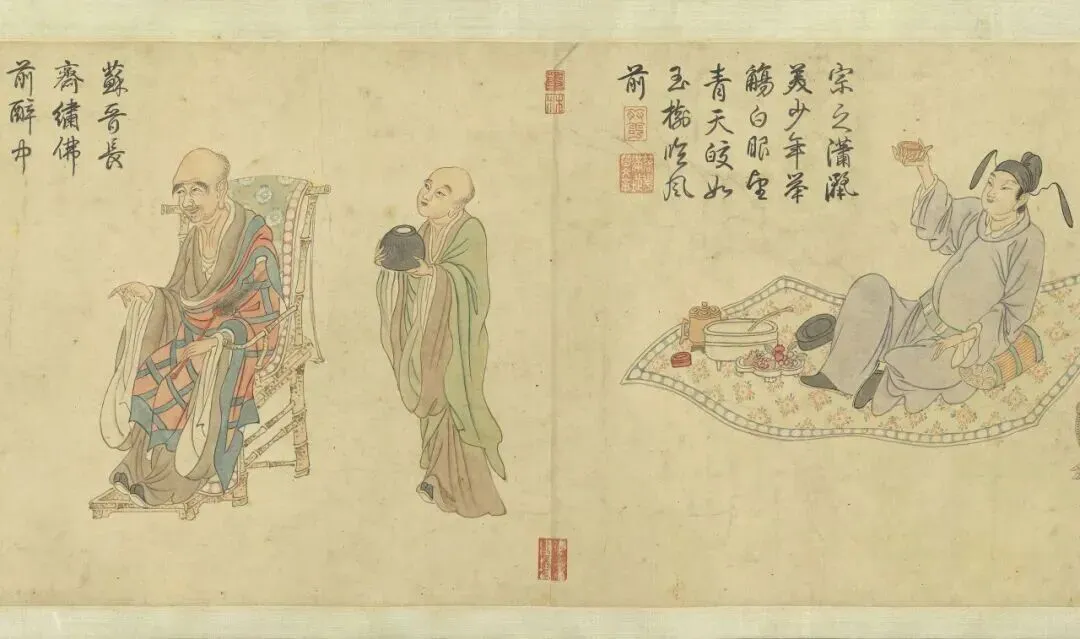 宗之瀟灑
美少年举
觴白眼望
青天皎如
玉樹临风
前
蘇晉長
齋繡佛
前醉中